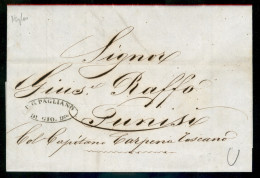 Signor
Gius.e Raffo
Tunisi
Col Capitano Carpena Toscano
PAGLIANO